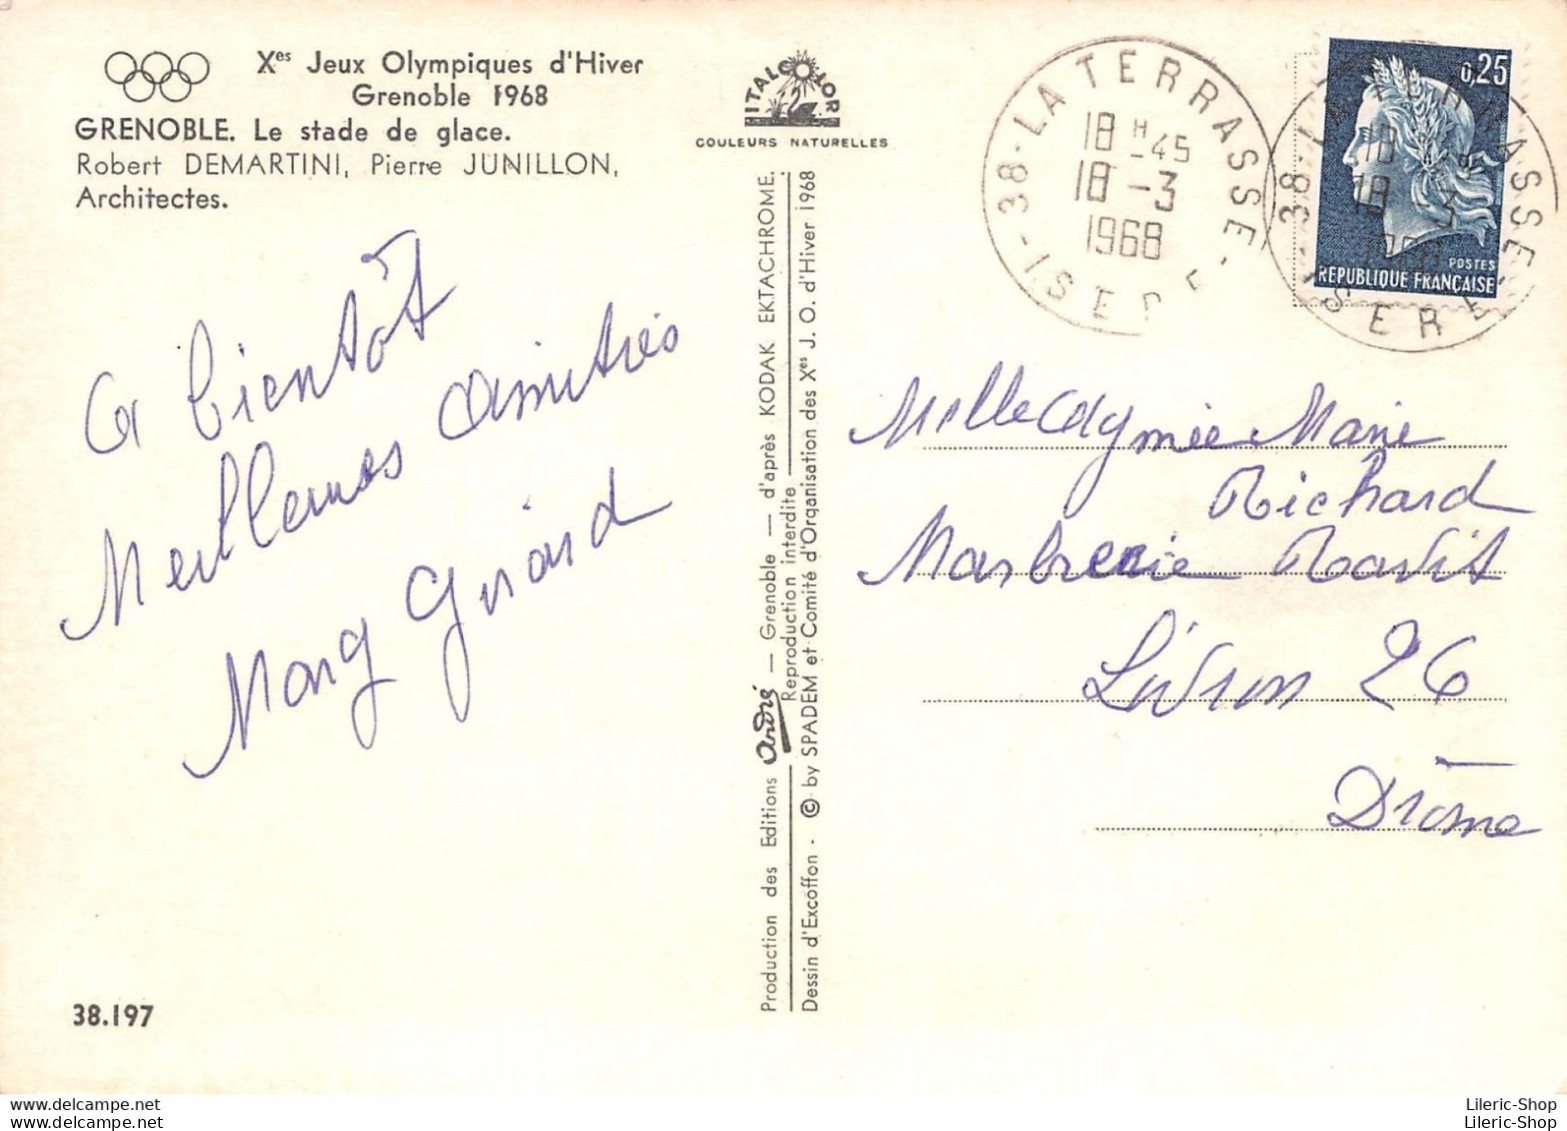 Xes Jeux Olympiques d'Hiver
Grenoble 1968
GRENOBLE. Le stade de glace.
Robert DEMARTINI, Pierre JUNILLON,
Architectes.
ITALCOLOR
COULEURS NATURELLES
38-LA TERRASSE-
18 H-45
18 -3
1968
-ISERE-
0,25
POSTES
REPUBLIQUE FRANÇAISE
38-LA TERRASSE
18 H-45
18 -3
1968
ISERE
a bientôt
Meilleures Amitiés
Marg Girard
Production des Editions André — Grenoble — d'après KODAK EKTACHROME.
Reproduction interdite
Dessin d'Excoffon - © by SPADEM et Comité d'Organisation des Xes J. O. d'Hiver 1968
Melle Aymée Marie
Richard
Marbrerie
Livron 26
Drôme
38.197
Lileric-Shop
Lileric-Shop
Lileric-Shop
Lileric-Shop